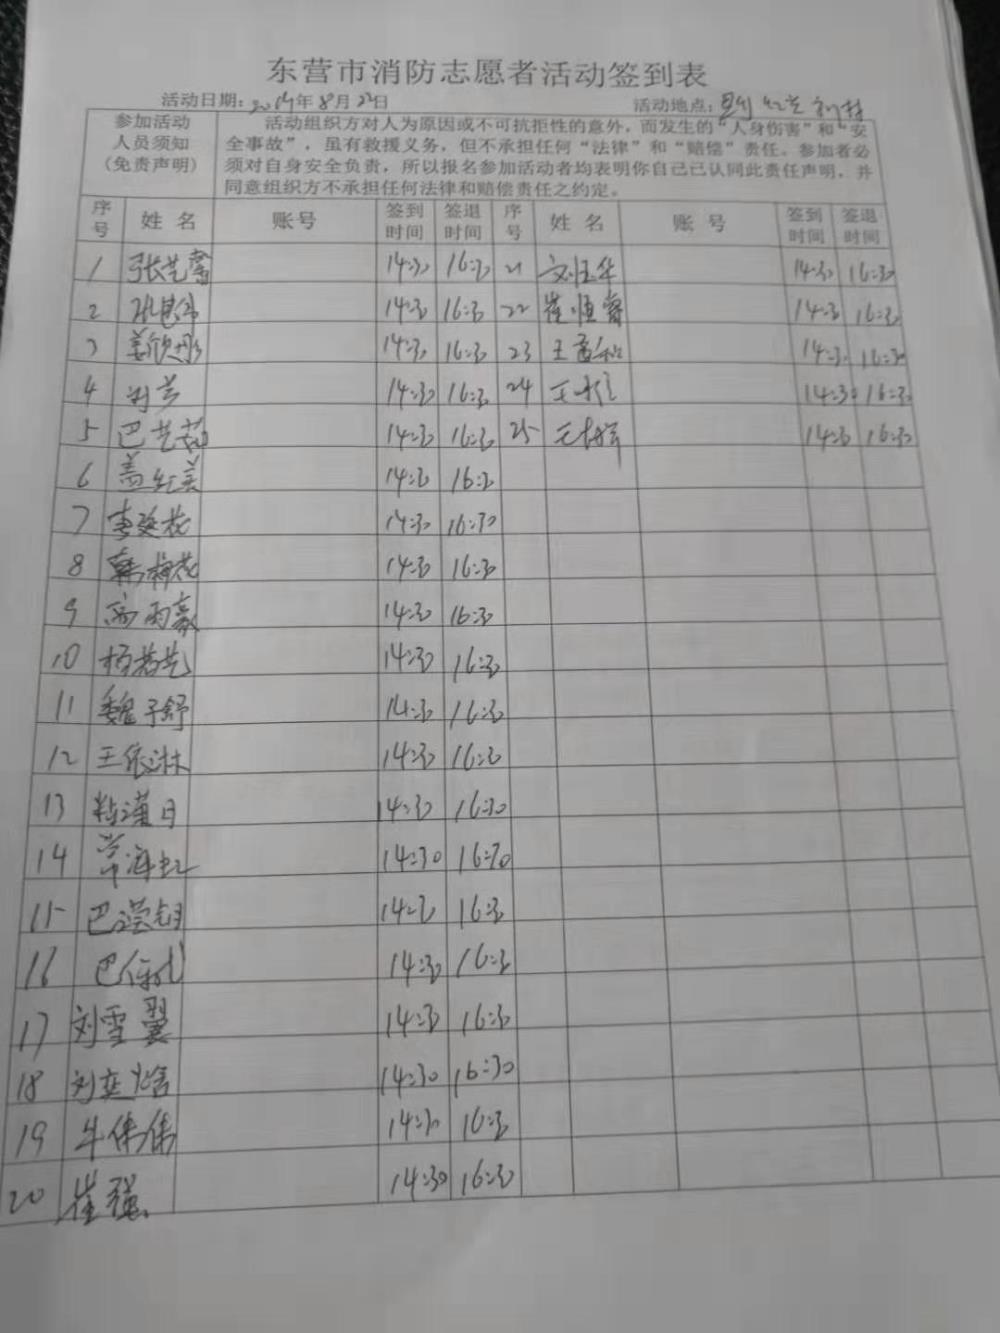 东营市消防志愿者活动签到表
活动日期：2019年8月23日 活动地点：
参加活动人员须知(免责声明)
活动组织方对人为原因或不可抗拒性的意外，而发生的“人身伤害”和“安
全事故”，虽有救援义务，但不承担任何“法律”和“赔偿”责任。参加者必
须对自身安全负责，所以报名参加活动者均表明你自己已认同此责任声明，并
同意组织方不承担任何法律和赔偿责任之约定。
序号 姓名 账号 签到时间 签退时间 序号 姓名 账号 签到时间 签退时间
1 张艺馨 14:30 16:30 21 刘玉华 14:30 16:30
2 14:30 16:30 22 崔恒睿 14:30 16:30
3 姜欣彤 14:30 16:30 23 王 14:30 16:30
4 刘芳 14:30 16:30 24 王 14:30 16:30
5 巴艺茹 14:30 16:30 25 王 14:30 16:30
6 盖红美 14:30 16:30
7 李延花 14:30 16:30
8 韩梅花 14:30 16:30
9 高雨豪 14:30 16:30
10 杨若艺 14:30 16:30
11 魏子舒 14:30 16:30
12 王依淋 14:30 16:30
13 14:30 16:30
14 常海虹 14:30 16:30
15 巴滢钥 14:30 16:30
16 巴 14:30 16:30
17 刘雪翼 14:30 16:30
18 刘奕焓 14:30 16:30
19 牛伟伟 14:30 16:30
20 崔强 14:30 16:30